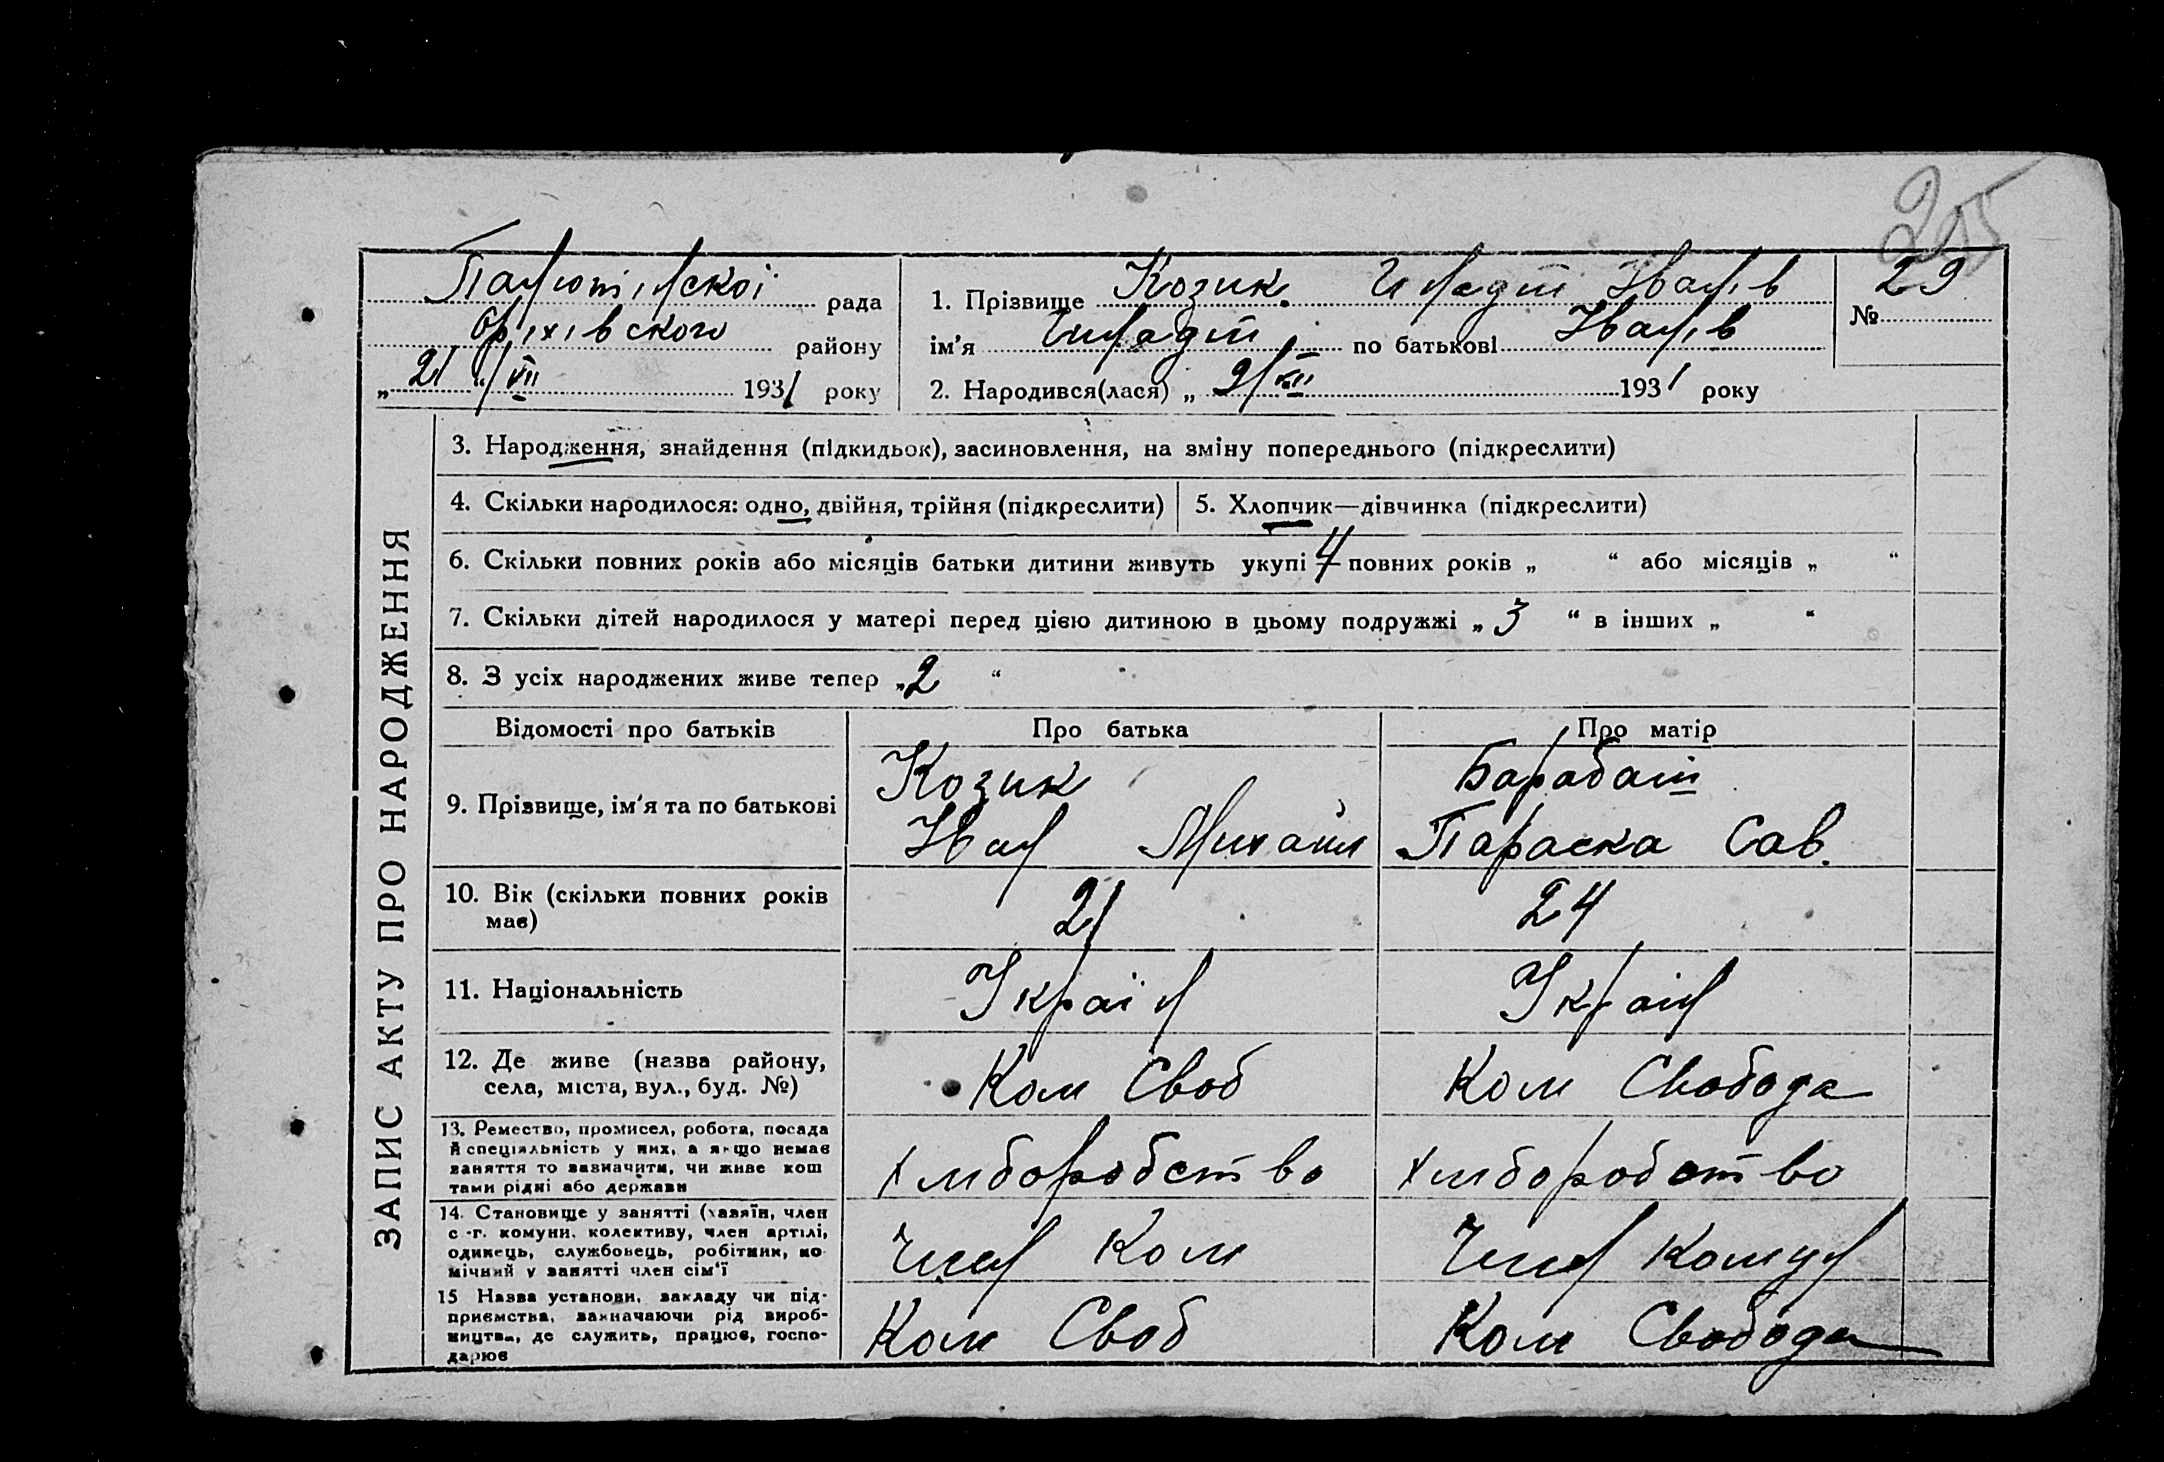 205
Панютінської рада
Оріхівського району
„ 21 “ VII 1931 року
1. Прізвище Козик Гнадій Іванів
ім'я по батькові Іванів
2. Народився(лася) „ 21 VII 1931 року
№ 29
ЗАПИС АКТУ ПРО НАРОДЖЕННЯ
3. Народження, знайдення (підкидьок), засиновлення, на зміну попереднього (підкреслити)
4. Скільки народилося: одно, двійня, трійня (підкреслити)
5. Хлопчик—дівчинка (підкреслити)
6. Скільки повних років або місяців батьки дитини живуть укупі 4 повних років „ “ або місяців „ “
7. Скільки дітей народилося у матері перед цією дитиною в цьому подружжі „ 3 “ в інших „ “
8. З усіх народжених живе тепер „ 2 “
Відомості про батьків Про батька Про матір
9. Прізвище, ім'я та по батькові
Козик
Іван Михайл
Барабаш
Параска Сав.
10. Вік (скільки повних років
має)
21
24
11. Національність
Україн
Україн
12. Де живе (назва району,
села, міста, вул., буд. №)
Ком Своб
Ком Свобода
13. Ремество, промисел, робота, посада
й спеціяльність у них, а якщо немає
заняття то зазначити, чи живе кош
тами рідні або держави
Хліборобство
Хліборобство
14. Становище у занятті (хазяїн, член
с.-г. комуни, колективу, член артілі,
одинець, службовець, робітник, по
мічний у занятті член сім'ї
Член Ком
Член Комун
15 Назва установи, закладу чи під-
приємства, зазначаючи рід вироб-
ництва, де служить, працює, госпо-
дарює
Ком Своб
Ком Свобода